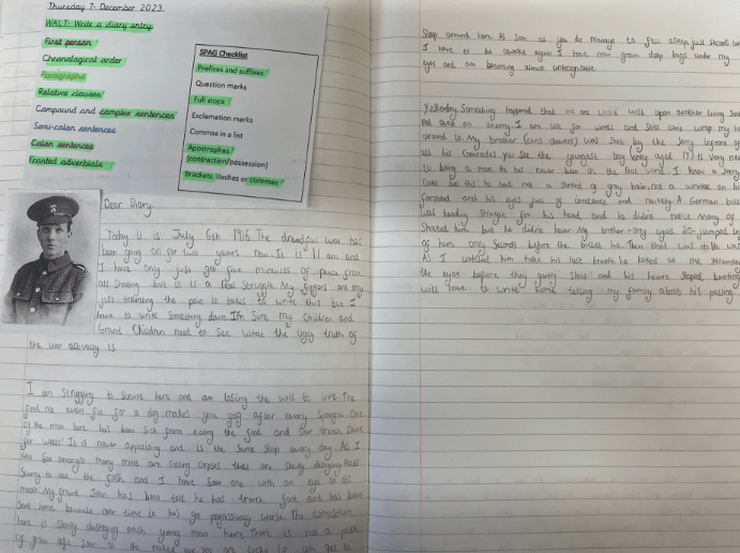 Thursday 7th December 2023.
WALT: Write a diary entry
First person
Chronological order
Paragraphs
Relative clauses
Compound and complex sentences
Semi-colon sentences
Colon sentences
Fronted adverbials
SPAG Checklist
Prefixes and suffixes
Question marks
Full stops
Exclamation marks
Commas in a list
Apostrophes
(contraction/possession)
Brackets, dashes or commas
Dear Diary,
Today it is July 6th 1916. The dreadful war has
been going on for two years now. It is 11 am and
I have only just got five minutes of peace from
all shooting but it is a real struggle. My fingers are
just tolerating the pain it takes to write this but I
have to write something down. I'm sure my children and
Grand Children need to see what the ugly truth of
the war actually is
I am struggling to survive here and am losing the will to live. The
food, no even for a dog, makes you gag after every spoonful. One
of the men here has been sick from eating the food and our trench stunk
for weeks! It is never appetising and is the same slop every day. As I
can see amongst many mice are rotting corpses that are slowly decaying. Rats
scurry to the filth and I have seen one with an eye in its
mouth! My friend John has been told he has trench foot and has been
sent home because over time it has got progressively worse. The atmosphere
here is slowly destroying each young man here. There is not a patch
of green left to the naked eye. You are lucky if you get to
Sleep around here. As soon as you do manage to fall asleep just seconds
I have to be awake again. I have now grown deep bags under my
eyes and am becoming almost unrecognisable
Yesterday, something happened that no one would wish upon another living
not even on an enemy. I am lost for words and still cant wrap my
around it. My brother was shot by the Jerry
all his Comrades. You see the youngest boy (only aged 17) is very new
to being a he's never been in the real world. I knew a Jerry
this he had not a strand of gray hair, not a wrinkle on his
forehead and his eyes full of and A German
was heading straight for his head, and he didn't notice. Many of
shouted him but he didnt hear. My brother-only aged 20-jumped
of him only seconds before the bullet hit. Then that was it he was
As I watched him take his last breath he looked at me
the eyes before they gently shut and his heart stopped beating.
will have to write home telling my family about his passing.